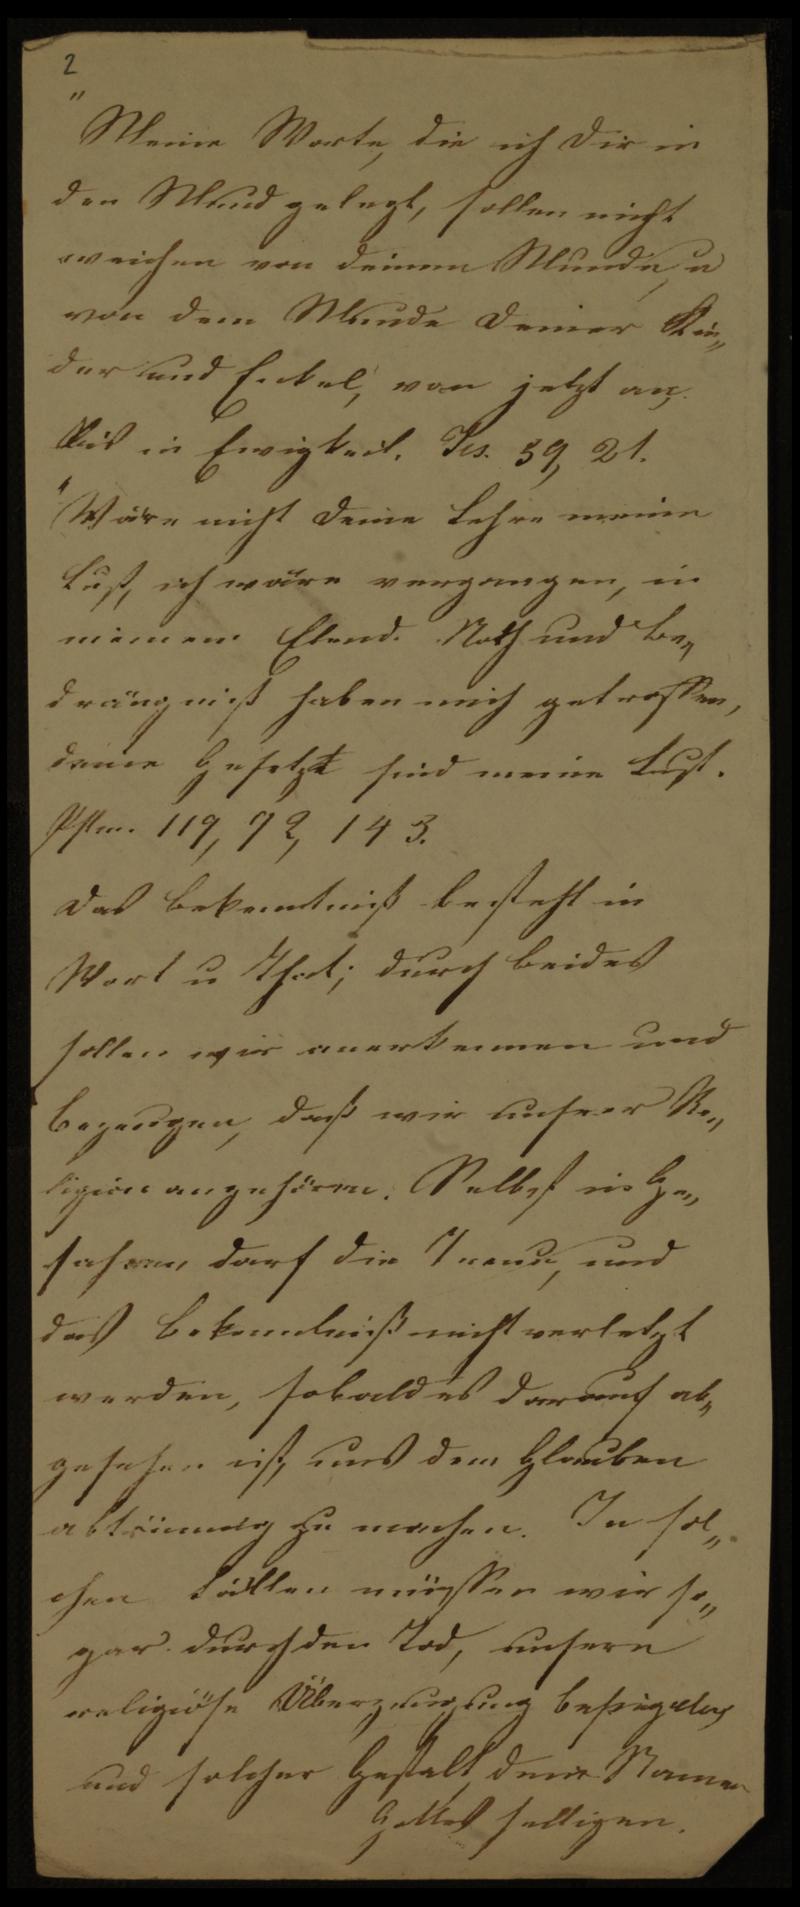 2
"Meine Worte, die ich Dir in
den Mund gelegt, sollen nicht
weichen von deinem Munde, u
von dem Munde Deiner Kin„
der und Enkel, von jetzt an,
bis in Ewigkeit. Jes. 59, 21.
"Wäre nicht Deine Lehre meine
Lust, ich wäre vergangen, in
meinem Elend. Noth und Be„
drängniß haben mich getroffen,
deine Gesetze sind meine Lust.
Pslm. 119, 92, 143.
Das Bekenntniß besteht in
Wort u That; durch beides
sollen wir anerkennen und
bezeugen, daß wir unserer Re„
ligion angehören. Selbst in Ge„
fahren darf die Treue, und
das Bekenntniß nicht verletzt
werden, sobald es darauf ab„
gesehen ist, uns dem Glauben
abtrünnig zu machen. In sol„
chen Fällen müssen wir so„
gar durch den Tod, unsere
religiöse Überzeugung besiegeln
und solcher Gestalt den Namen
Gottes heiligen.